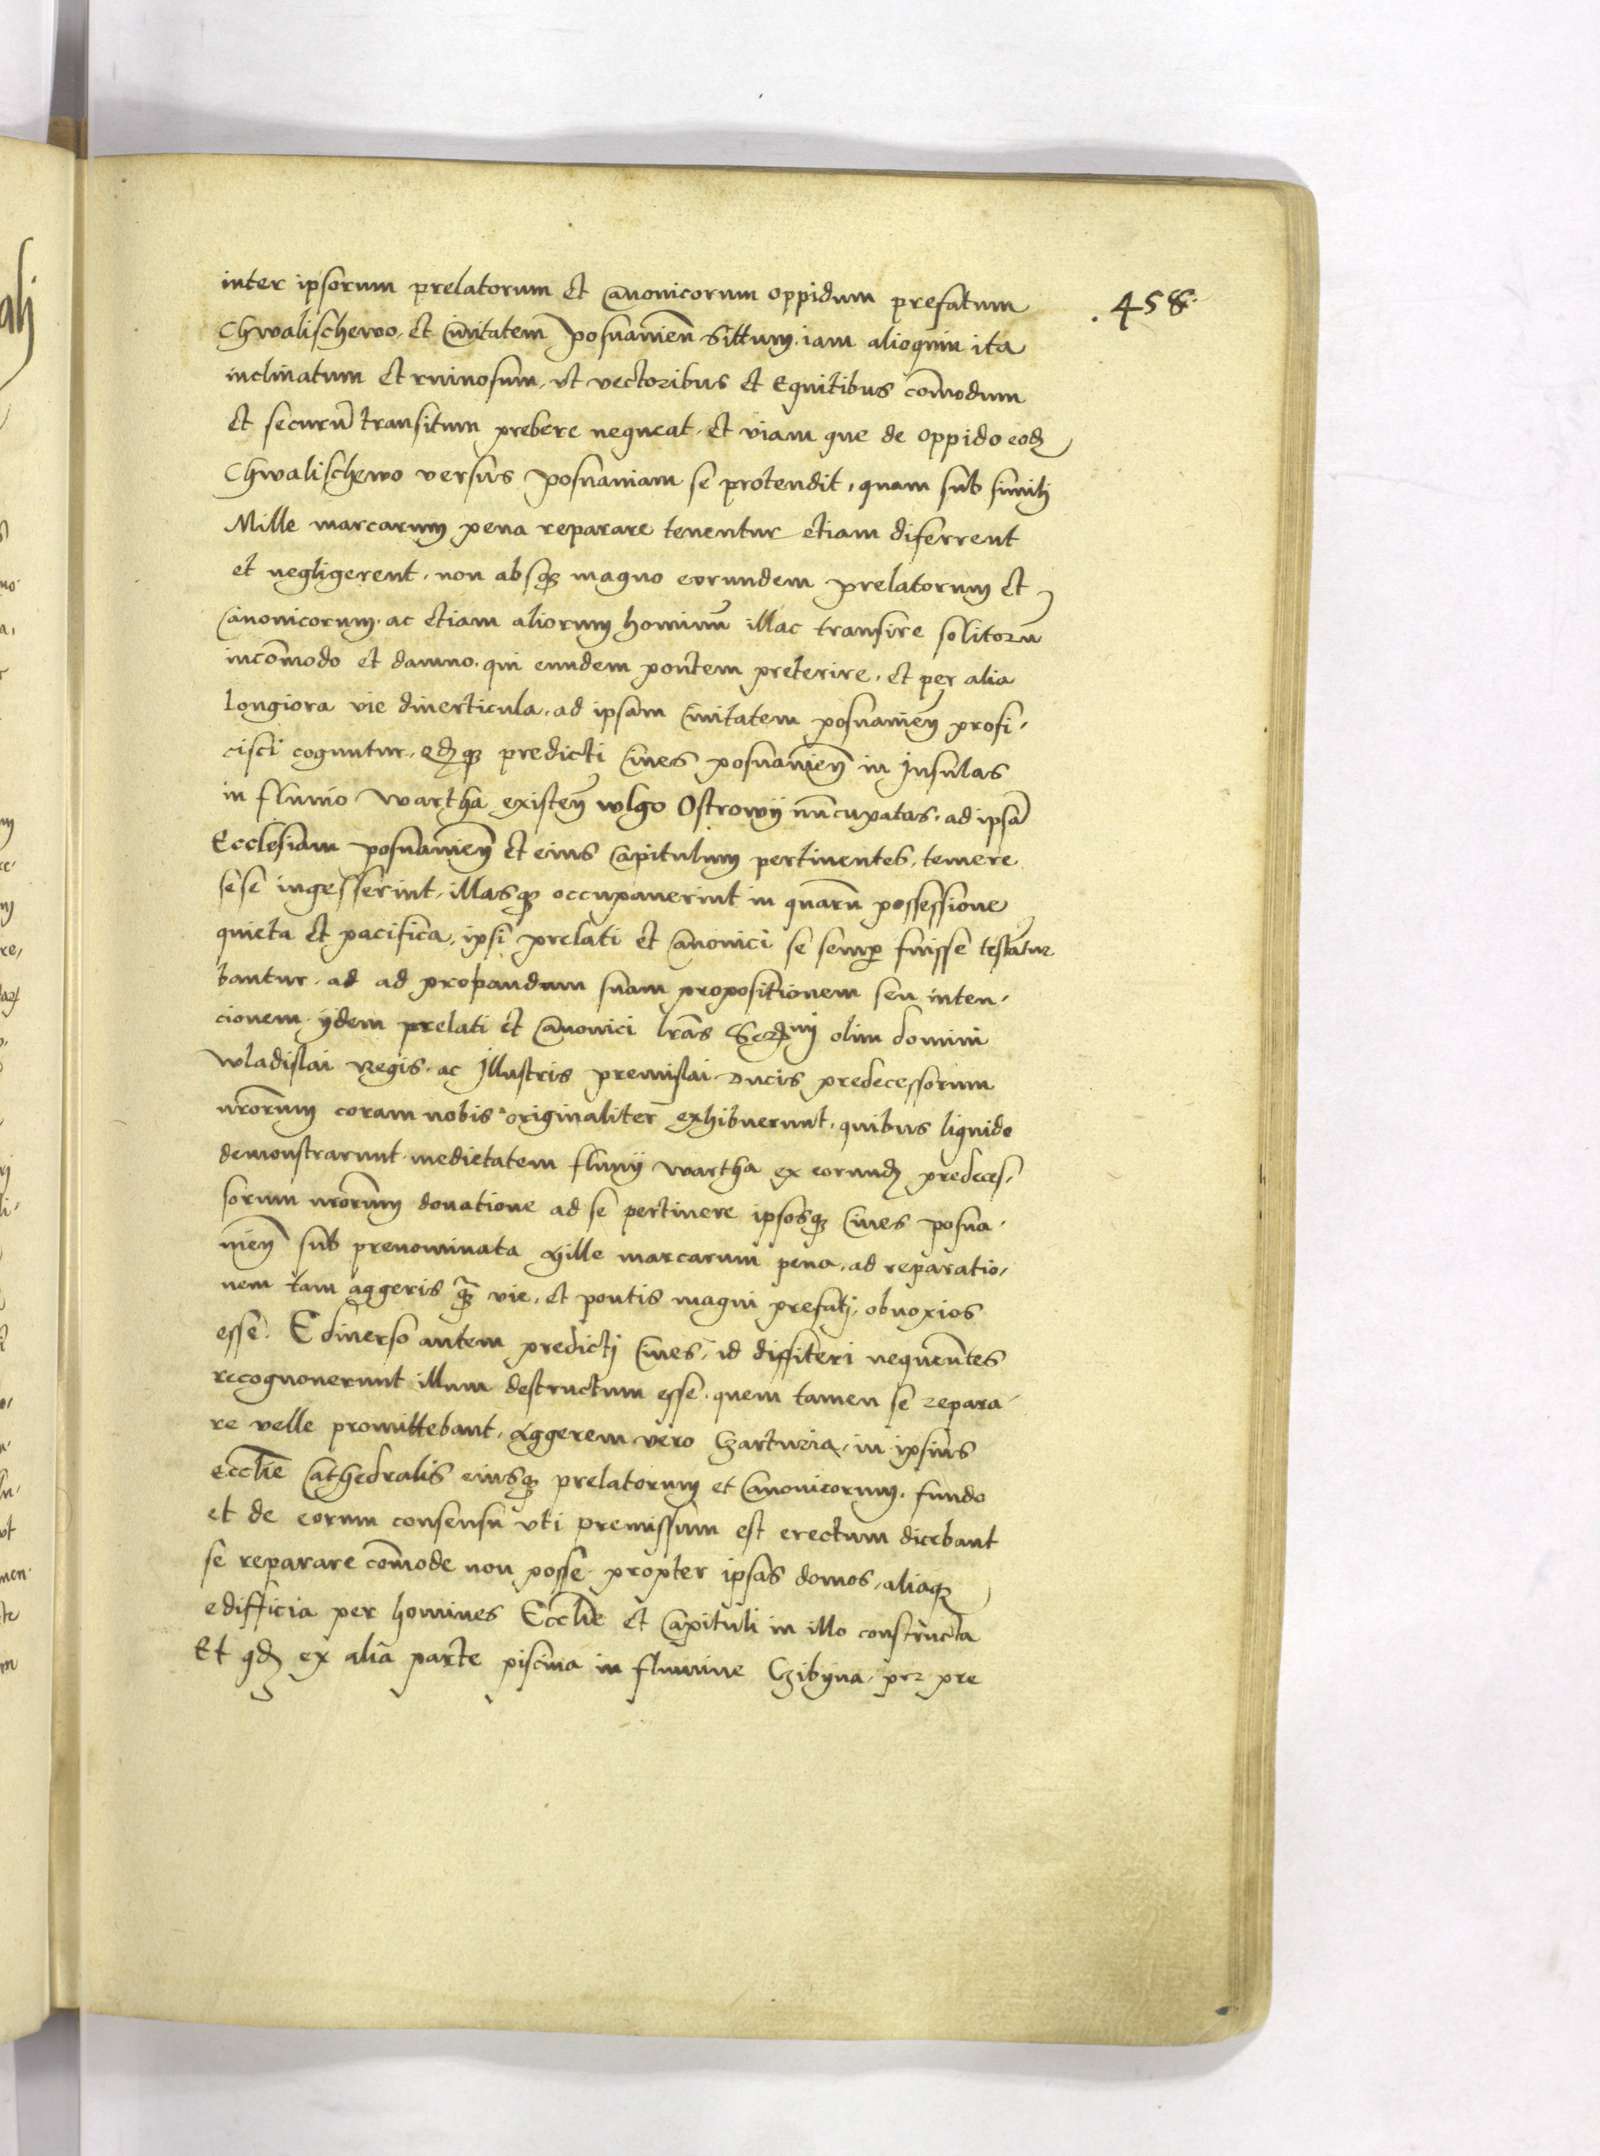 inter ipsorum prelatorum et Canonicorum oppidum prefatum
.458.
Chwalischewo. et Civitatem posnanien̄ Sittum. iam alioquin ita
inclinatum et ruinosum, ut vectoribus et Equitibus com̄odum
et securū transitum prebere nequeat. et viam que de oppido eodꝫ
Chwalischewo versus posnaniam se protendit, quam sub simili
Mille marcarum pena reparare tenentur etiam diferrent
et negligerent. non absqꝫ magno eorundem prelatorum et
Canonicorum. ac etiam aliorum hominū illac transire solitorū
incom̄odo et damno. qui eundem pontem preterire, et per alia
longiora vie diverticula, ad ipsam Civitatem posnanien̄ profi-
cisci coguntur. qdqꝫ predicti Cives posnanien̄ in Insulas
in fluvio Wartha existen̄ wlgo Ostrowij nūcupatas. ad ipsā
Ecclesiam posnanien̄ et eius Capitulum pertinentes, temere
sese ingesserint. illasqꝫ occupaverint in quarū possessione
quieta et pacifica, ipsi prelati et Canonici se semꝑ fuisse testātur
bantur. ad ad probandum suam propositionem seu inten-
cionem. ijdem prelati et Canonici lrās olim domini
Wladislai Regis. ac Illustris premislai Ducis predecessorum
nr̄orum coram nobis originaliter exhibuerunt, quibus liquido
demonstrarunt medietatem fluvij Wartha ex eorundꝫ predeces-
sorum nr̄orum donatione ad se pertinere ipsosqꝫ Cives posna-
nien̄ sub prenominata Mille marcarum pena, ad reparatio-
nem tam aggeris qꝫ vie, et pontis magni prefati, obnoxios
esse. E diverso autem predicti Cives, id diffiteri nequentes
recognoverunt illum destructum esse. quem tamen se repara-
re velle promittebant, Aggerem vero Czarturia, in ipsius
eccl̄ie Cathedralis eiusqꝫ prelatorum et Canonicorum. fundo
et de eorum consensu uti premissum est erectum dicebant
se reparare com̄ode non posse. propter ipsas domos, aliaqꝫ
edifficia per homines Eccl̄ie et Capituli in illo constructa
Et qdꝫ ex alia parte piscina in flumine Czibyna. per pre